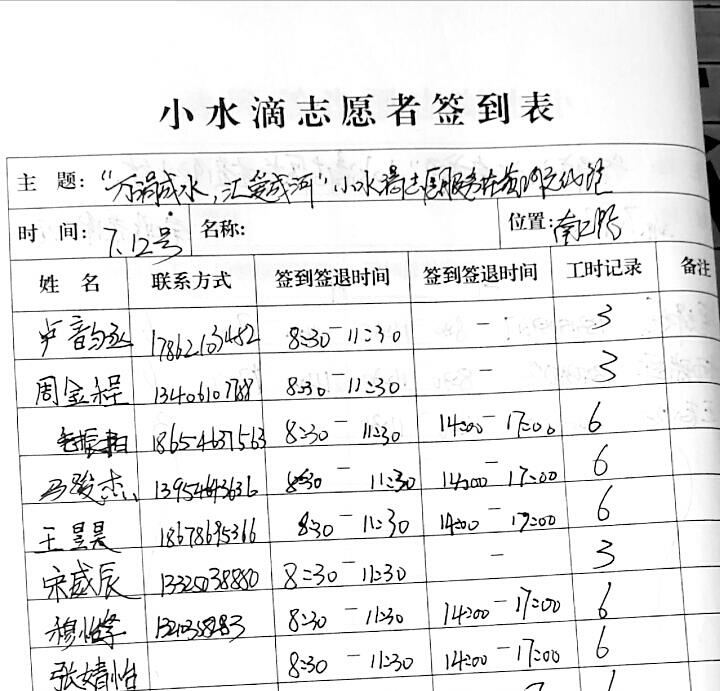 小水滴志愿者签到表
主 题: “万涓成水,汇爱成河”小水滴志愿服务在
时 间: 7.12号 名称: 位置:南
姓 名 联系方式 签到签退时间 签到签退时间 工时记录 备注
卢音 8:30-11:30 - 3
周金程 8:30-11:30 - 3
18654637563 8:30-11:30 14:00-17:00 6
马骏杰 8:30-11:30 14:00-17:00 6
王昱昊 18678695366 8:30-11:30 14:00-17:00 6
宋盛辰 13325038880 8:30-11:30 - 3
穆怡 8:30-11:30 14:00-17:00 6
张婧怡 8:30-11:30 14:00-17:00 6